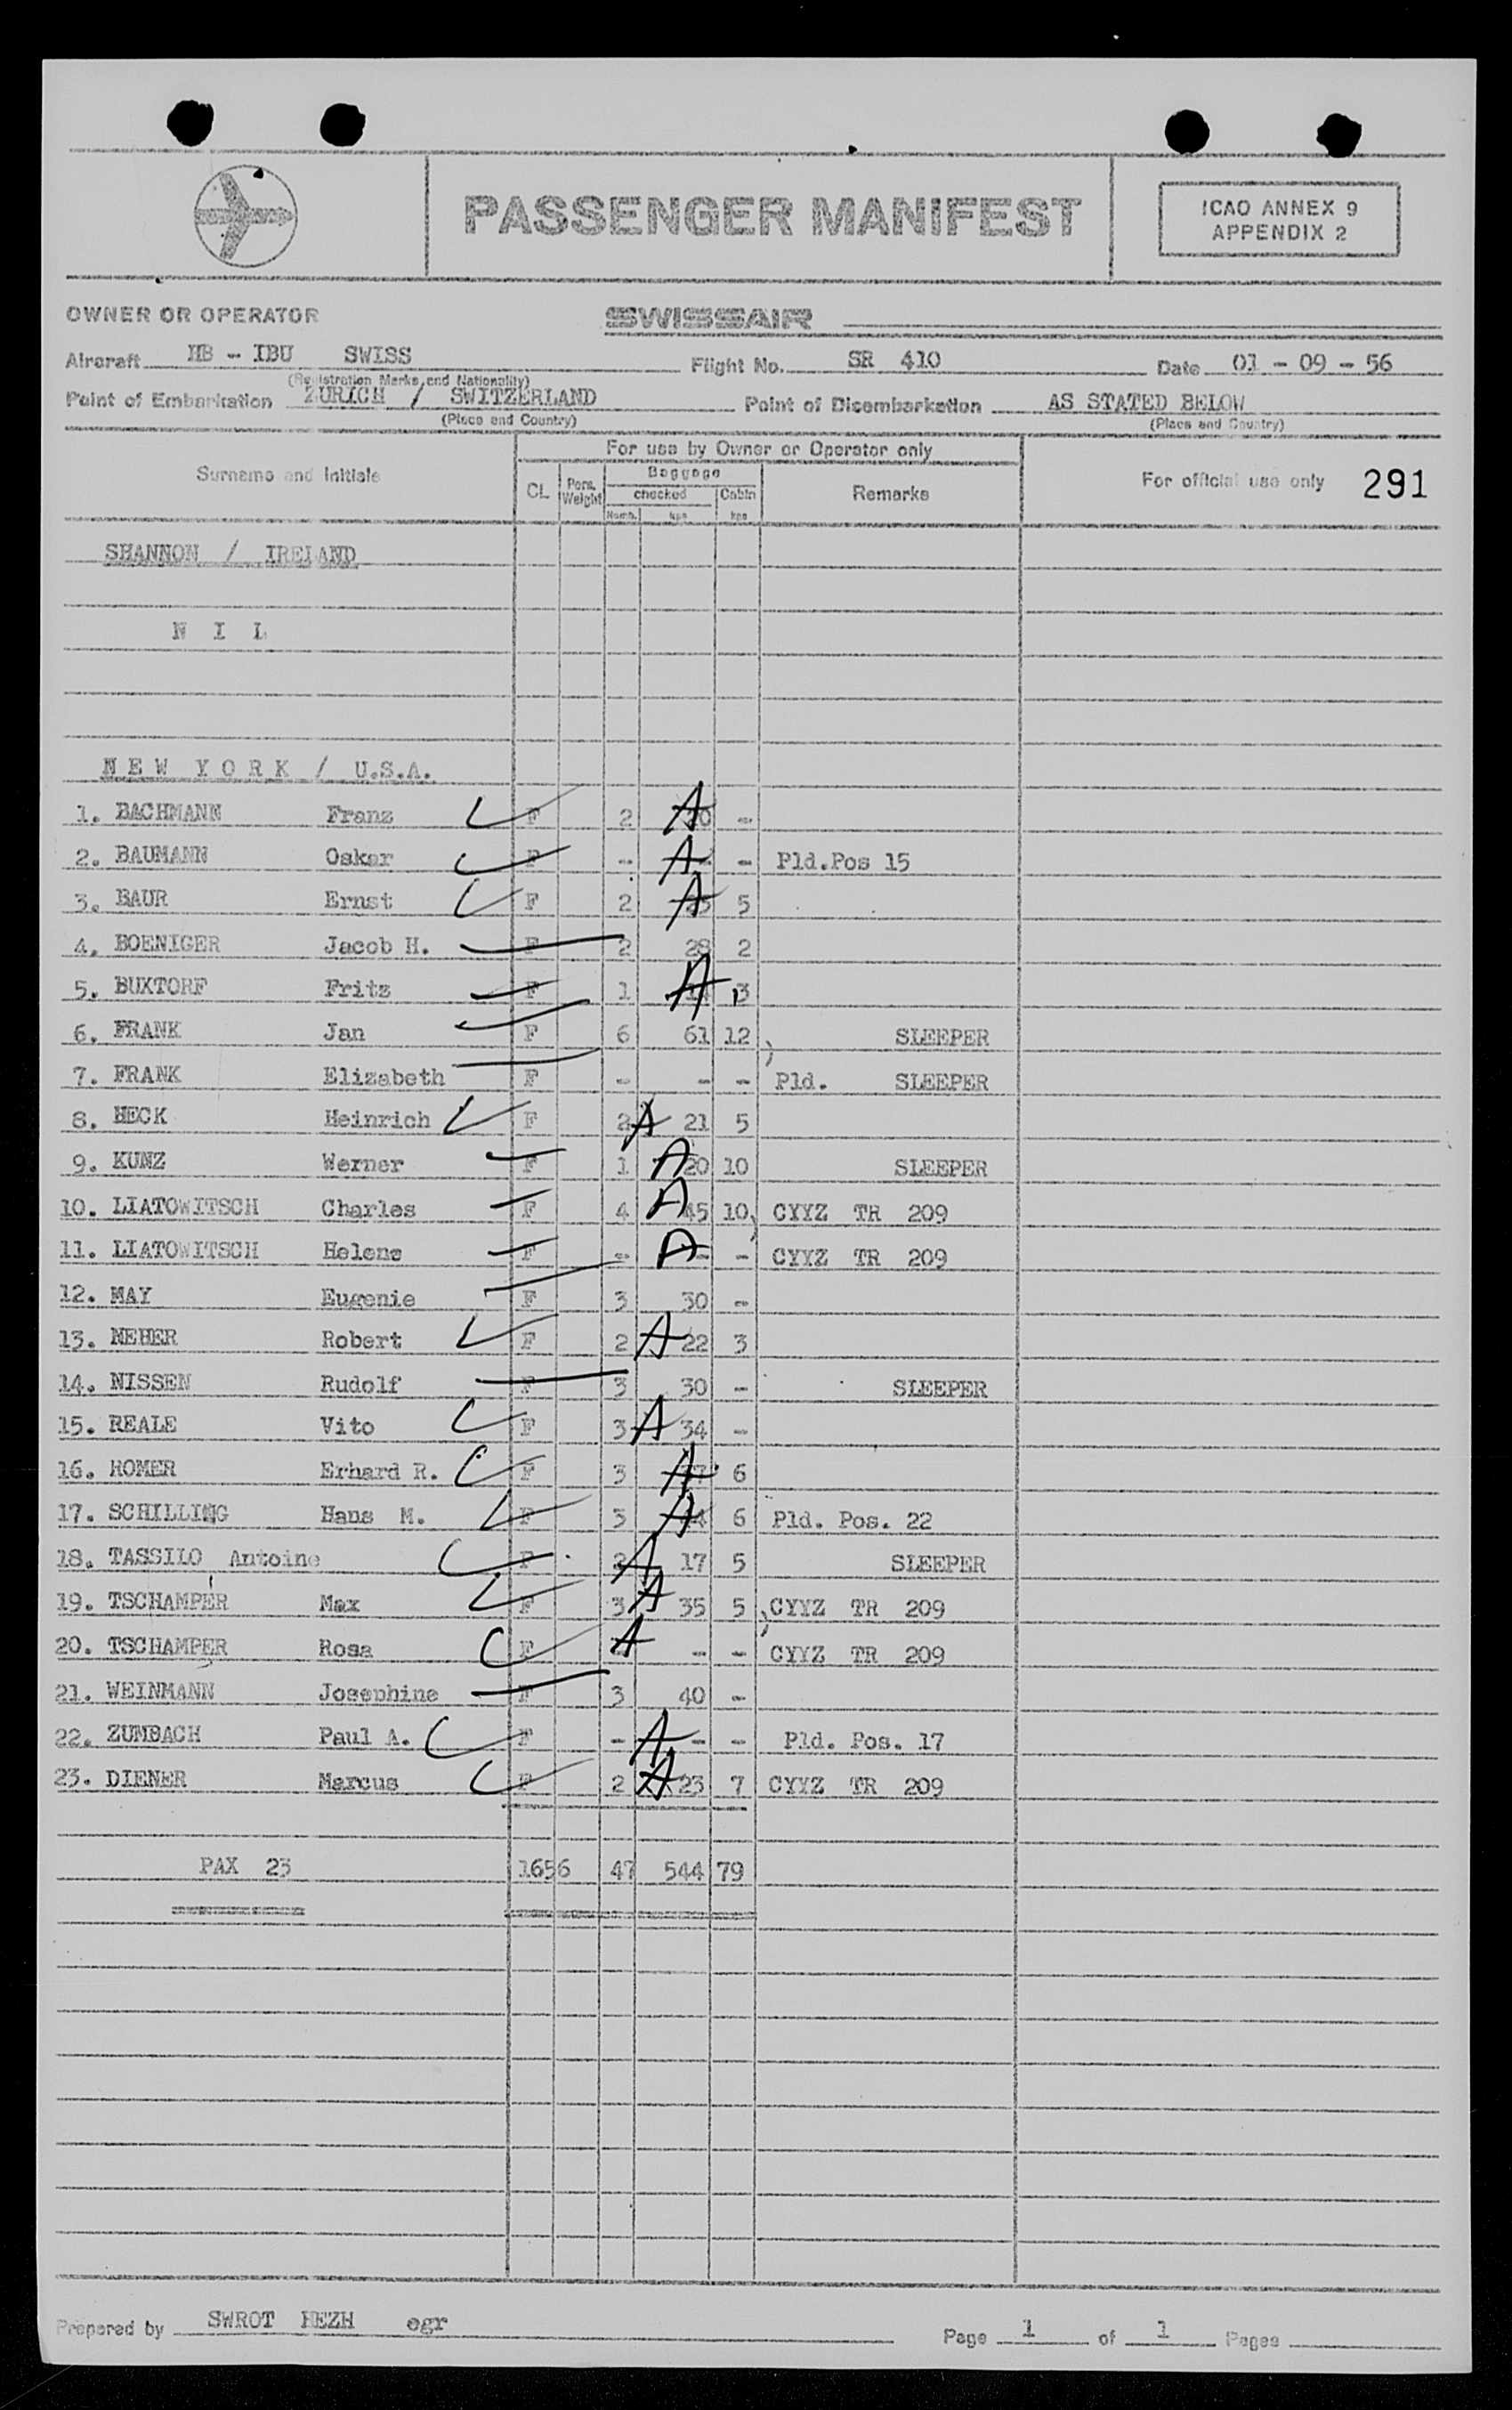 PASSENGER MANIFEST
ICAO ANNEX 9
APPENDIX 2
OWNER OR OPERATOR SWISSAIR
Aircraft HB - IBU SWISS Flight No. SR 410 Date 01 - 09 - 56
(Registration Marks and Nationality)
Point of Embarkation ZURICH / SWITZERLAND Point of Disembarkation AS STATED BELOW
(Place and Country) (Place and Country)
For use by Owner or Operator only
Surname and Initials CL Pers. Weight Baggage checked Numb. kgs Cabin kgs Remarks For official use only 291
SHANNON / IRELAND
N I L
N E W Y O R K / U.S.A.
1. BACHMANN Franz F 2 A -
2. BAUMANN Oskar F - A - Pld.Pos 15
3. BAUR Ernst F 2 A 5
4. BOENIGER Jacob H. F 2 28 2
5. BUXTORF Fritz F 1 A 3
6. FRANK Jan F 6 61 12 ) SLEEPER
7. FRANK Elizabeth F - - - Pld. SLEEPER
8. HECK Heinrich F 2 A 21 5
9. KUNZ Werner F 1 A 20 10 SLEEPER
10. LIATOWITSCH Charles F 4 A 45 10 ) CYYZ TR 209
11. LIATOWITSCH Helene F - A - - CYYZ TR 209
12. MAY Eugenie F 3 30 -
13. NEHER Robert F 2 A 22 3
14. NISSEN Rudolf F 3 30 - SLEEPER
15. REALE Vito F 3 A 34 -
16. ROMER Erhard R. F 3 A 6
17. SCHILLING Hans M. F 3 A 6 Pld. Pos. 22
18. TASSILO Antoine F 2 A 17 5 SLEEPER
19. TSCHAMPER Max F 3 A 35 5 ) CYYZ TR 209
20. TSCHAMPER Rosa F A - - CYYZ TR 209
21. WEINMANN Josephine F 3 40 -
22. ZUMBACH Paul A. F - A - - Pld. Pos. 17
23. DIENER Marcus F 2 A 23 7 CYYZ TR 209
PAX 23 1656 47 544 79
Prepared by SWROT HEZH egr Page 1 of 1 Pages